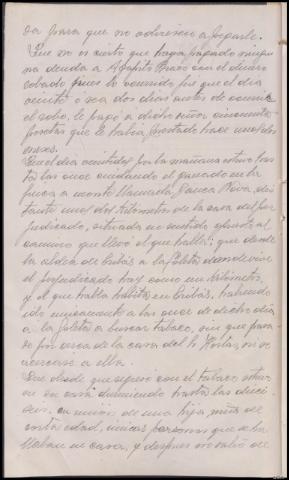 da para que no volviesen a pegarle.
Que no es cierto que haya pagado ninguna
na deuda a Agapito Bravo con el dinero
robado pues lo ocurrido fue que el día
veinte o sea dos dias antes de ocurrir
el robo, le pagó a dicho señor cincuenta
pesetas que le había prestado hace unos dos
meses.
Que el día veintidos por la mañana estuvo hasta
las once cuidando el ganado en la
finca o monte llamada distante
unos dos kilometros de la casa del perjudicado,
situada en sentido opuesto al
camino que llevó el que habla; que desde
la aldea de a la donde vive
el perjudicado hay como un kilometro,
y el que habla habita en habiendo
ido unicamente a las once de dicho día
a la a buscar tabaco, sin que pasase
por cerca de la casa del ni se
acercase a ella.
Que desde que regresó con el tabaco estuvo
en su casa durmiendo hasta las
en union de una hija, niña de
corta edad, unicas personas que se
hallaban en casa, y despues no salió de